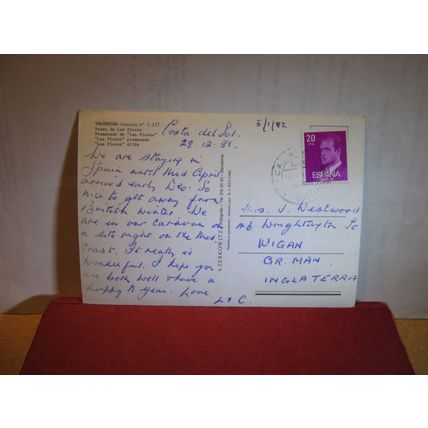 SALOBREÑA-Granada Nº 1.177
Paseo de Las Flores
Promenade de "Las Flores"
"Las Flores" promenade
"Las Flores" Allée
Costa del Sol.
29.12.81.
5/1/82
We are staying in
Spain until Mid April
arrived early Dec. So
nice to get away from
British winter. We
are in our caravan on
a site right on the Med
Coast. It really is
wonderful. I hope you
are both well & have a
happy N. Year. Love
L & C.
A. ZERKOWITZ
20
PTA
ESPAÑA
J. Westwood
Wrightington
WIGAN
GR. MAN.
INGLATERRA